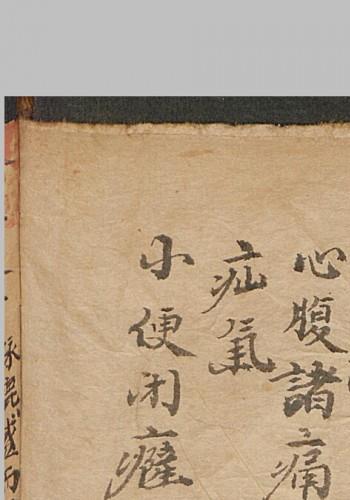 心腹諸痛
疝氣
小便閉癃